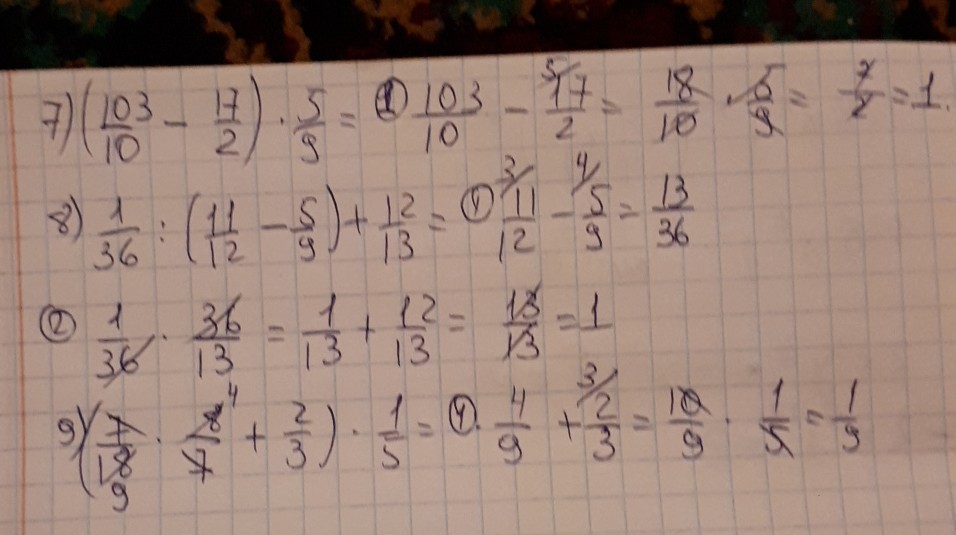 7) (103/10 - 17/2) · 5/9 = ① 103/10 - 5/ 17/2 = 18/10 · 5/9 = 2/2 = 1.
8) 1/36 : (11/12 - 5/9) + 12/13 = ① 3/ 11/12 - 4/ 5/9 = 13/36
② 1/36 · 36/13 = 1/13 + 12/13 = 13/13 = 1
9) (7/18 9 · 8/7 4 + 2/3) · 1/5 = ①. 4/9 + 3/ 2/3 = 10/9 · 1/5 = 1/9